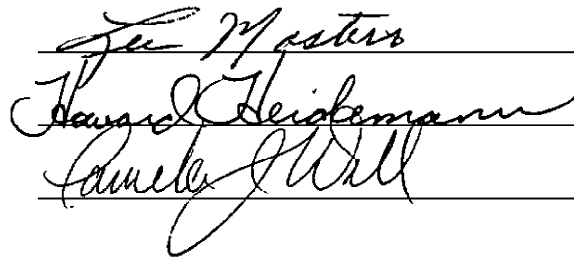 Lee Masters
Howard Heidemann
Pamela J Will